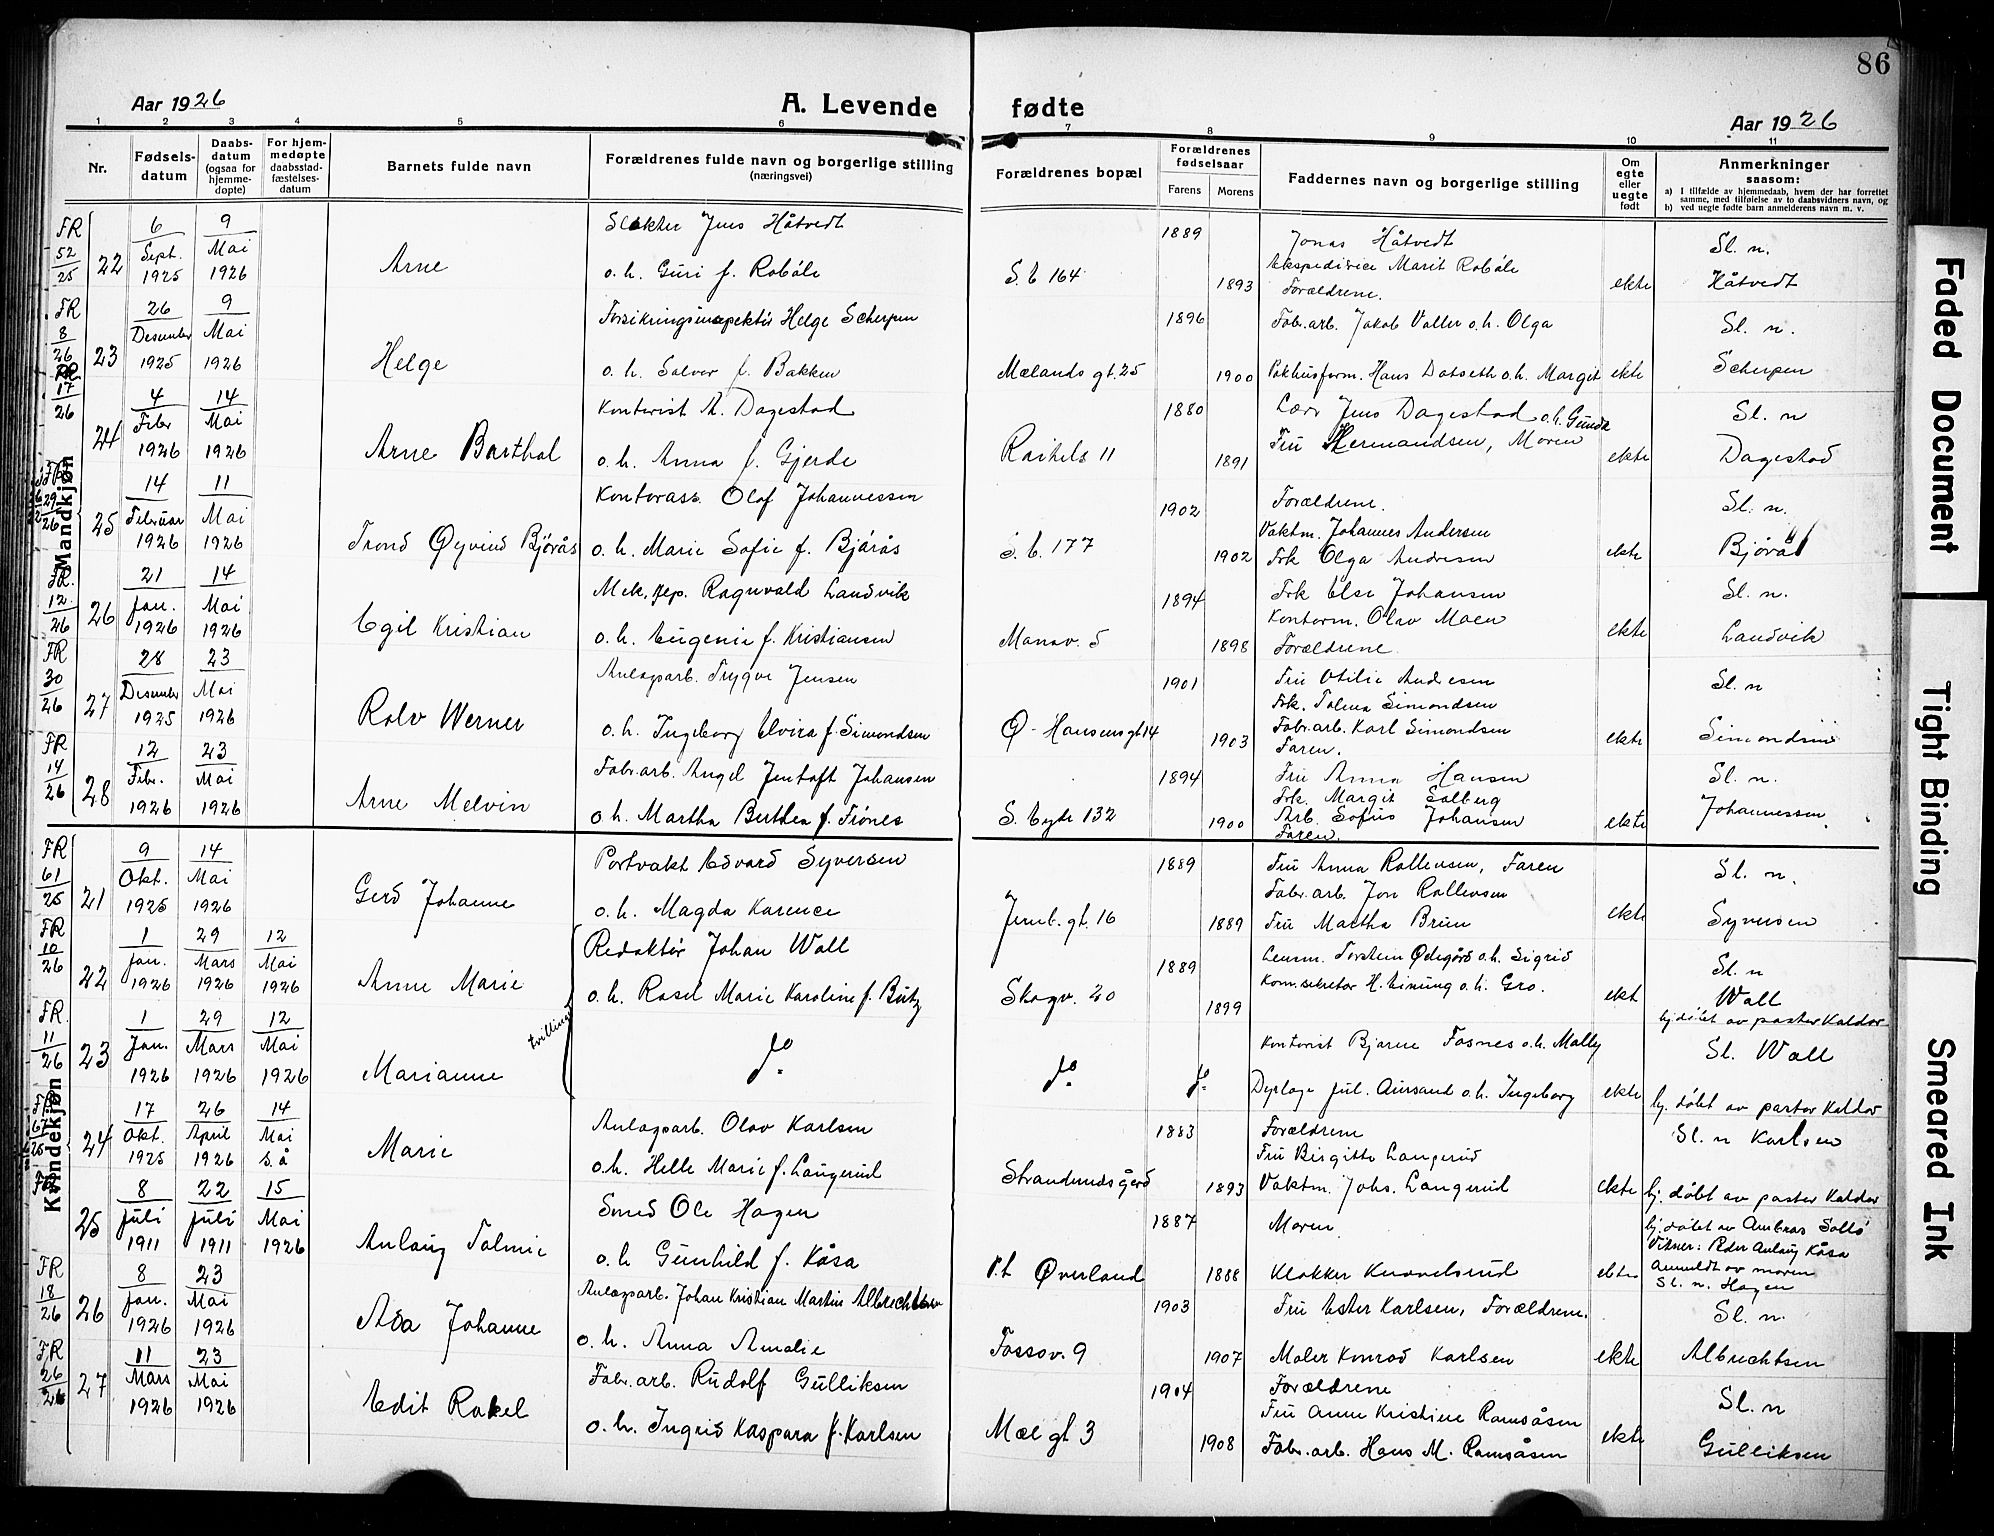 86
Aar 1926
A. Levende fødte
Aar 1926
1 2 3 4 5 6 7 8 9 10 11
Nr.
Fødsels-
datum
Daabs-
datum
(ogsaa for
hjemme-
døpte)
For hjem-
medøpte
daabsstad-
fæstelses-
datum
Barnets fulde navn
Forældrenes fulde navn og borgerlige stilling
(næringsvei)
Forældrenes bopæl
Forældrenes
fødselsaar
Farens Morens
Faddernes navn og borgerlige stilling
Om
egte
eller
uegte
født
Anmerkninger
saasom:
a) I tilfælde av hjemmedaab, hvem der har forrettet
samme, med tilføielse av to daabsvidners navn, og
b) ved uegte fødte barn anmelderens navn m. v.
Mandkjøn
FR 52/25 22 6 Sept. 1925 9 Mai 1926
Arne
Slakter Jens Håtvedt
o.h. Guri f. Robøle
S.E 164
1889
1893
Jonas Håtvedt
Ekspeditrice Marit Robøle
Forældrene.
ekte
Sl. n.
Håtvedt
FR 8/26 23 26 Desember 1925 9 Mai 1926
Helge
Forsikringsinspektør Helge Scherpen
o.h. Solver f. Bakken
Mælands gt. 25
1896
1900
Fabr.arb. Jakob Valler o.h. Olga
Pakhusform. Hans Datseth o.h. Margit
ekte
Sl. n.
Scherpen
FR 17/26 24 4 Febr 1926 14 Mai 1926
Arne Barthol
Kontorist A. Dagestad
o.h. Anna f. Gjerde
1880
1891
Lær Jens Dagestad o.h. Gunda
Fru Hermandsen, Moren
ekte
Sl. n
Dagestad
25 14 Februar 1926 11 Mai 1926
Trond Øyvind Bjørås
Kontorass. Olaf Johannessen
o.h. Marie Sofie f. Bjørås
S.b. 177
1902
1902
Forældrene.
Vaktm. Johannes Andersen
Frk Olga Andresen
ekte
Sl. n.
FR. 12/26 26 21 Jan. 1926 14 Mai 1926
Egil Kristian
Mek. rep. Ragnvald Landvik
o.h. Eugenie f. Kristiansen
Manav. 5
1894
1898
Frk Else Johansen
Kontorm. Olav Moen
Forældrene.
ekte
Sl. n.
Landvik
FR 30/26 27 28 Desember 1925 23 Mai 1926
Rolv Werner
Anlægsarb. Trygve Jensen
o.h. Ingeborg Elvira f. Simondsen
Ø-Hansensgt 14
1901
1903
Fru Otilie Andresen
Frk. Tolma Simondsen
Fabr.arb. Karl Simondsen
Faren.
ekte
Sl. n
Simondsen
FR 14/26 28 12 Febr. 1926 23 Mai 1926
Arne Melvin
Fabr.arb. Angel Jentoft Johansen
o.h. Martha Berthea f. Trónes
S. Eyde 132
1894
1900
Fru Anna Hansen
Frk. Margit Solberg
Arb. Sofus Johansen
Faren.
ekte
Sl. n.
Johannessen
Kvindekjøn
FR 61/25 21 9 Okt. 1925 14 Mai 1926
Gerd Johanne
Portvakt Edvard Syversen
o.h. Magda Karence
Jernb.gt. 16
1889
1889
Fru Anna Rollevsen, Faren
Fabr.arb. Jon Rollevsen
Fru Martha Brun
ekte
Sl. n.
Syversen
FR 10/26 22 1 Jan. 1926 29 Mars 1926 12 Mai 1926
Anne Marie
tvillinger
Redaktør Johan Wall
o.h. Rosel Marie Karoline f. Butz
Skogv. 20
1889
1899
Lensm. Torstein Ødegård o.h. Sigrid
Kom.sekretær H. Einung o.h. Gro.
ekt
Sl. n
Wall
hj.døbt av pastor Kaldor
FR. 11/26 23 1 Jan. 1926 29 Mars 1926 12 Mai 1926
Marianne
do
do
do
Kontorist Bjarne Fosnes o.h. Mally
Dyrlæge Jul. Aursand o.h. Ingeborg
ekte
Sl. Wall
hj. døbt av pastor Kaldor
24 17 Okt. 1925 26 April 1926 14 Mai s.å
Marie
Anlægsarb. Olav Karlsen
o.h. Helle Marie f. Langerud
Strandlundsgård
1883
1893
Forældrene
Fru Birgitte Langerud
Vaktm. Johs. Langerud
ekte
Sl. n Karlsen
hj. døbt av pastor Kaldor
25 8 Juli 1911 22 Juli 1911 15 Mai 1926
Anlaug Tolmie
Smed Ole Hagen
o.h Gunhild f. Kåsa
P.t Øverland
1887
1888
Moren.
Klokker Knavelsrud
ekte
hj. døbt av Ambros Sollo
Vitner: Peder Anlaug Kåsa
Anmeldt av moren
Sl. n. Hagen
FR 18/26 26 8 Jan. 1926 23 Mai 1926
Ada Johanne
Anlægsarb. Johan Kristian Martin Albrechtsen
o.h. Anna Amalie
Fossov. 9
1903
1907
Fru Ester Karlsen, Forældrene.
Maler Konrad Karlsen
ekte
Sl. n.
Albrechtsen
FR 26/26 27 11 Mars 1926 23 Mai 1926
Edit Rakel
Fabr.arb. Rudolf Gulliksen
o.h. Ingrid Kaspara f. Karlsen
Mæl gt 3
1904
1908
Forældrene
Fru Anne Kristine Ramsåsen
Fabr.arb. Hans M. Ramsåsen
ekte
Sl. n
Gulliksen
Faded Document
Tight Binding
Smeared Ink